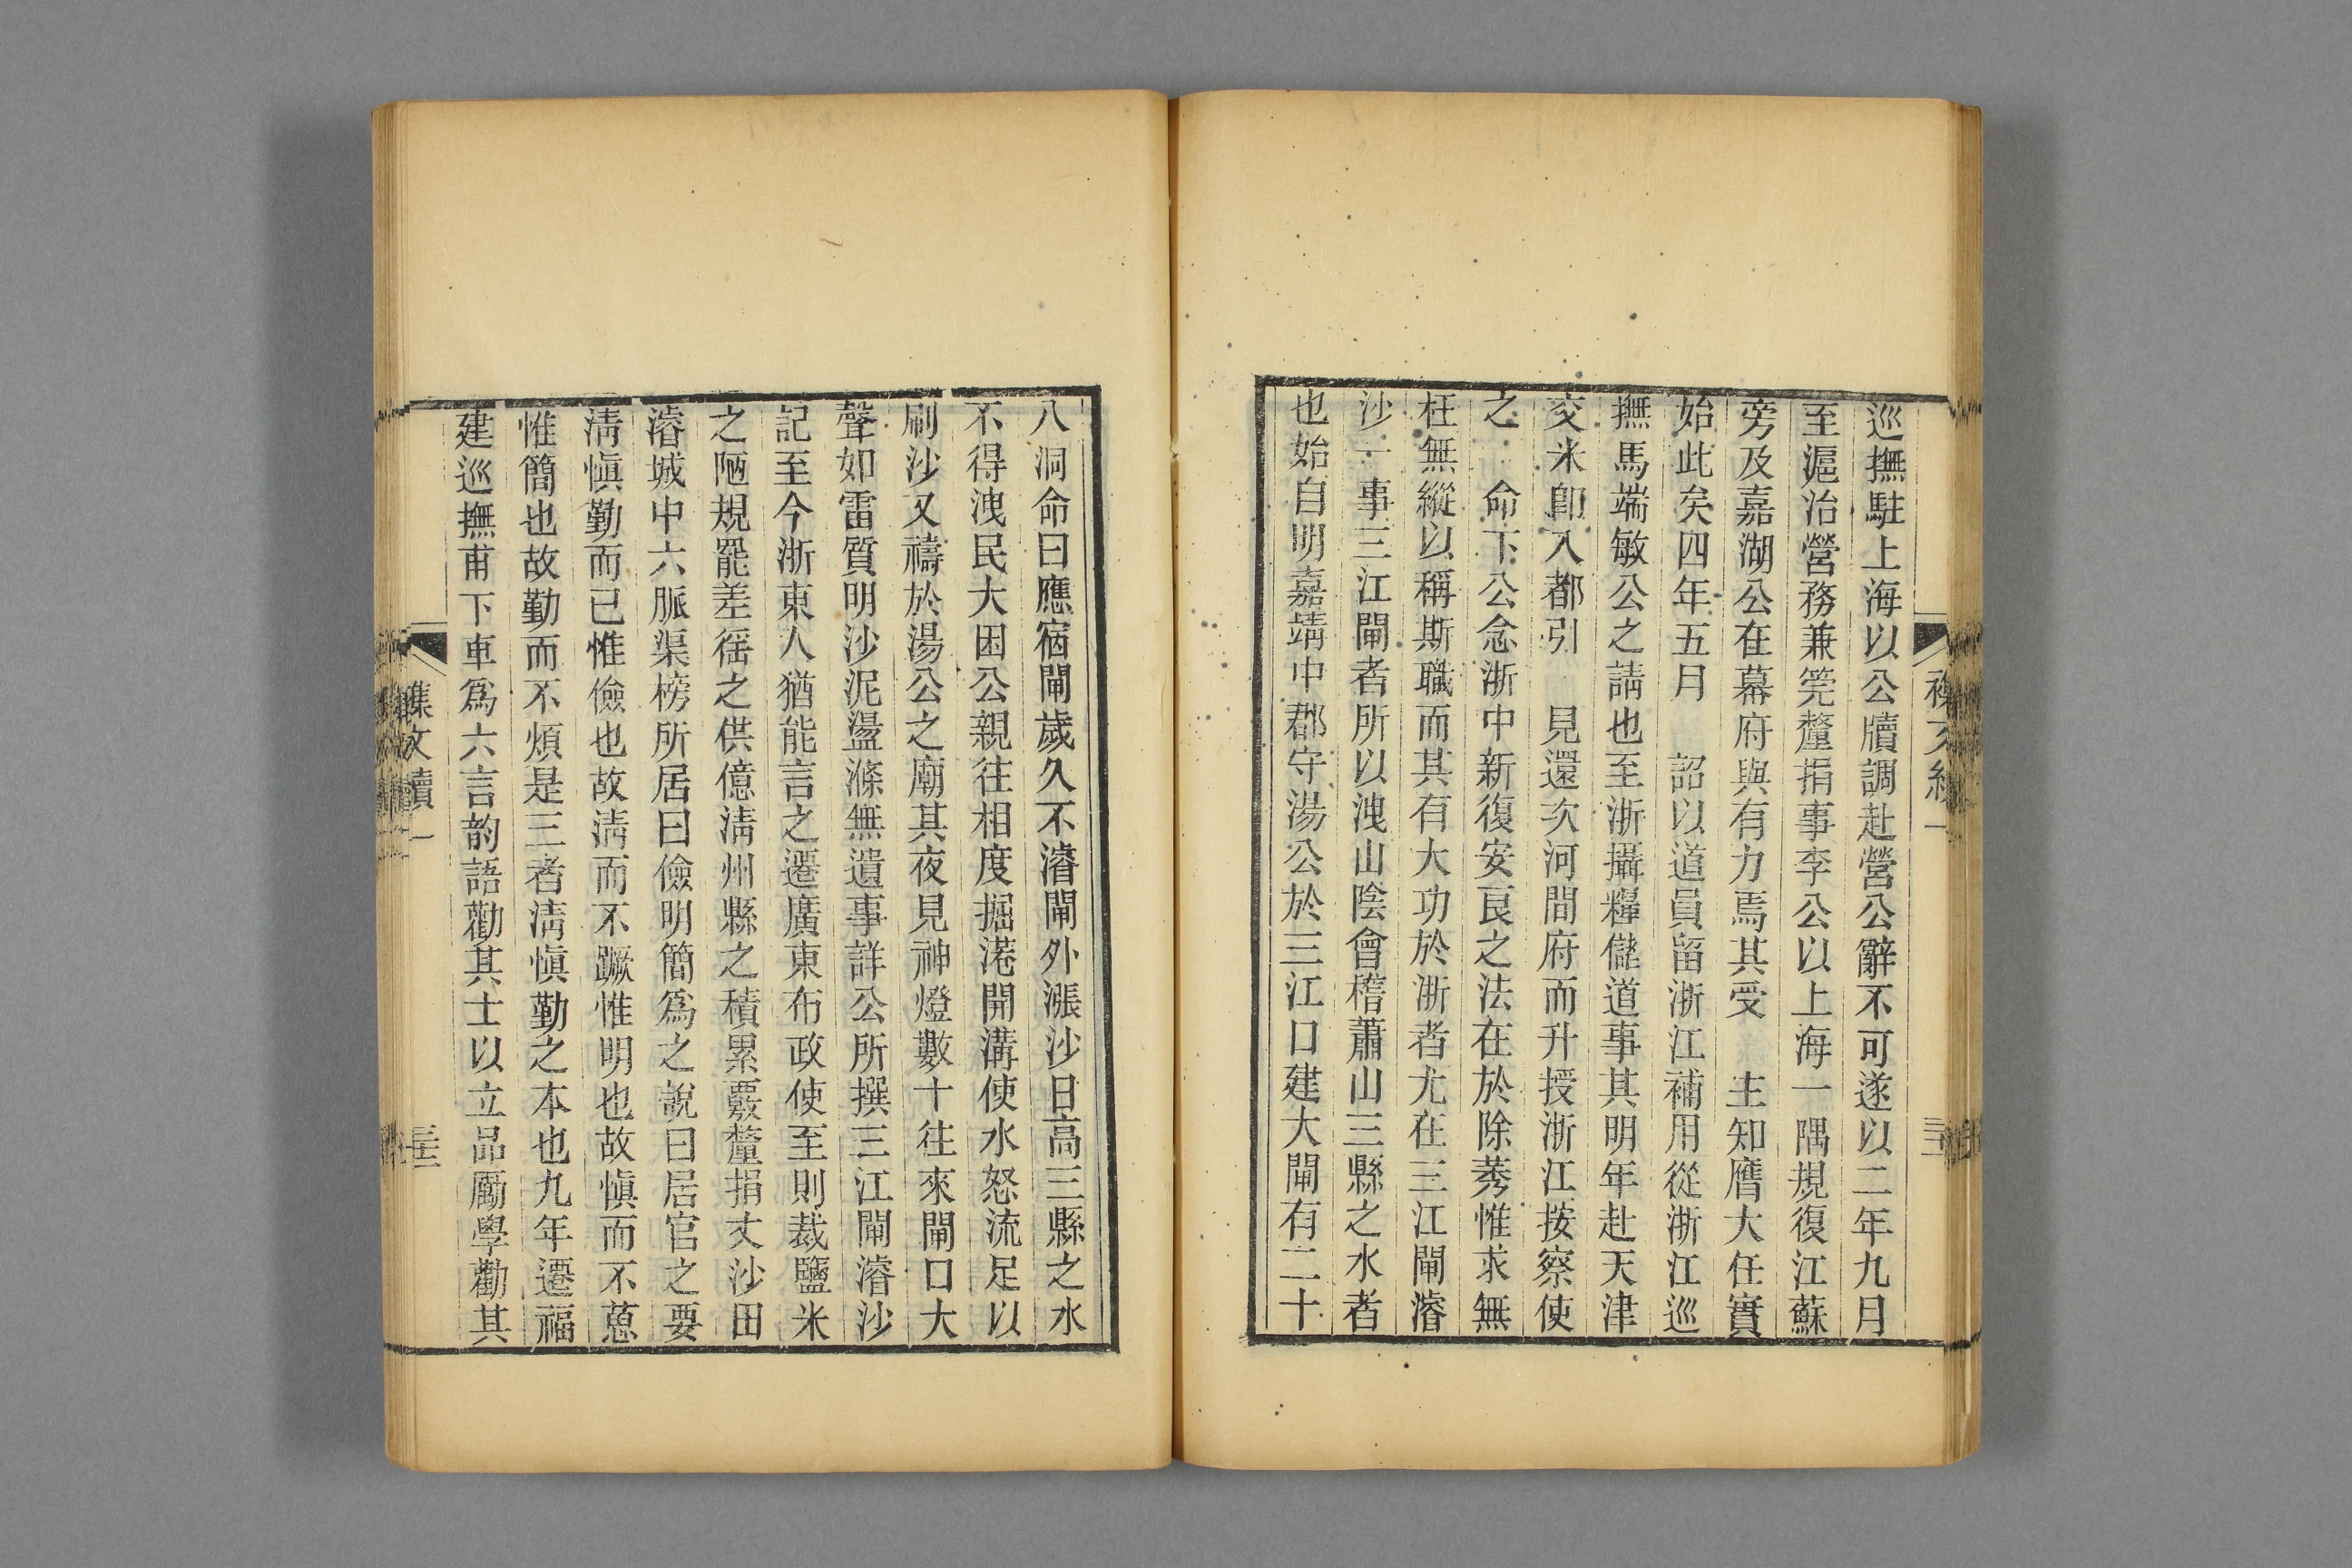 巡撫駐上海以公牘調赴營公辭不可遂以二年九月
至滬治營務兼筦釐捐事李公以上海一隅規復江蘇
旁及嘉湖公在幕府與有力焉其受　主知膺大任實
始此矣四年五月　詔以道員留浙江補用從浙江巡
撫馬端敏公之請也至浙攝糧儲道事其明年赴天津
交米卽入都引　見還次河間府而升授浙江按察使
之　命下公念浙中新復安良之法在於除莠惟求無
枉無縱以稱斯職而其有大功於浙者尤在三江閘濬
沙一事三江閘者所以洩山陰會稽蕭山三縣之水者
也始自明嘉靖中郡守湯公於三江口建大閘有二十
八洞命曰應宿閘歲久不濬閘外漲沙日高三縣之水
不得洩民大困公親往相度掘港開溝使水怒流足以
刷沙又禱於湯公之廟其夜見神燈數十往來閘口大
聲如雷質明沙泥盪滌無遺事詳公所撰三江閘濬沙
記至今浙東人猶能言之遷廣東布政使至則裁鹽米
之陋規罷差徭之供億淸州縣之積累覈釐捐丈沙田
濬城中六脈渠榜所居曰儉明簡爲之說曰居官之要
淸愼勤而已惟儉也故淸而不蹶惟明也故愼而不葸
惟簡也故勤而不煩是三者淸愼勤之本也九年遷福
建巡撫甫下車爲六言韵語勸其士以立品勵學勸其
雜文續一